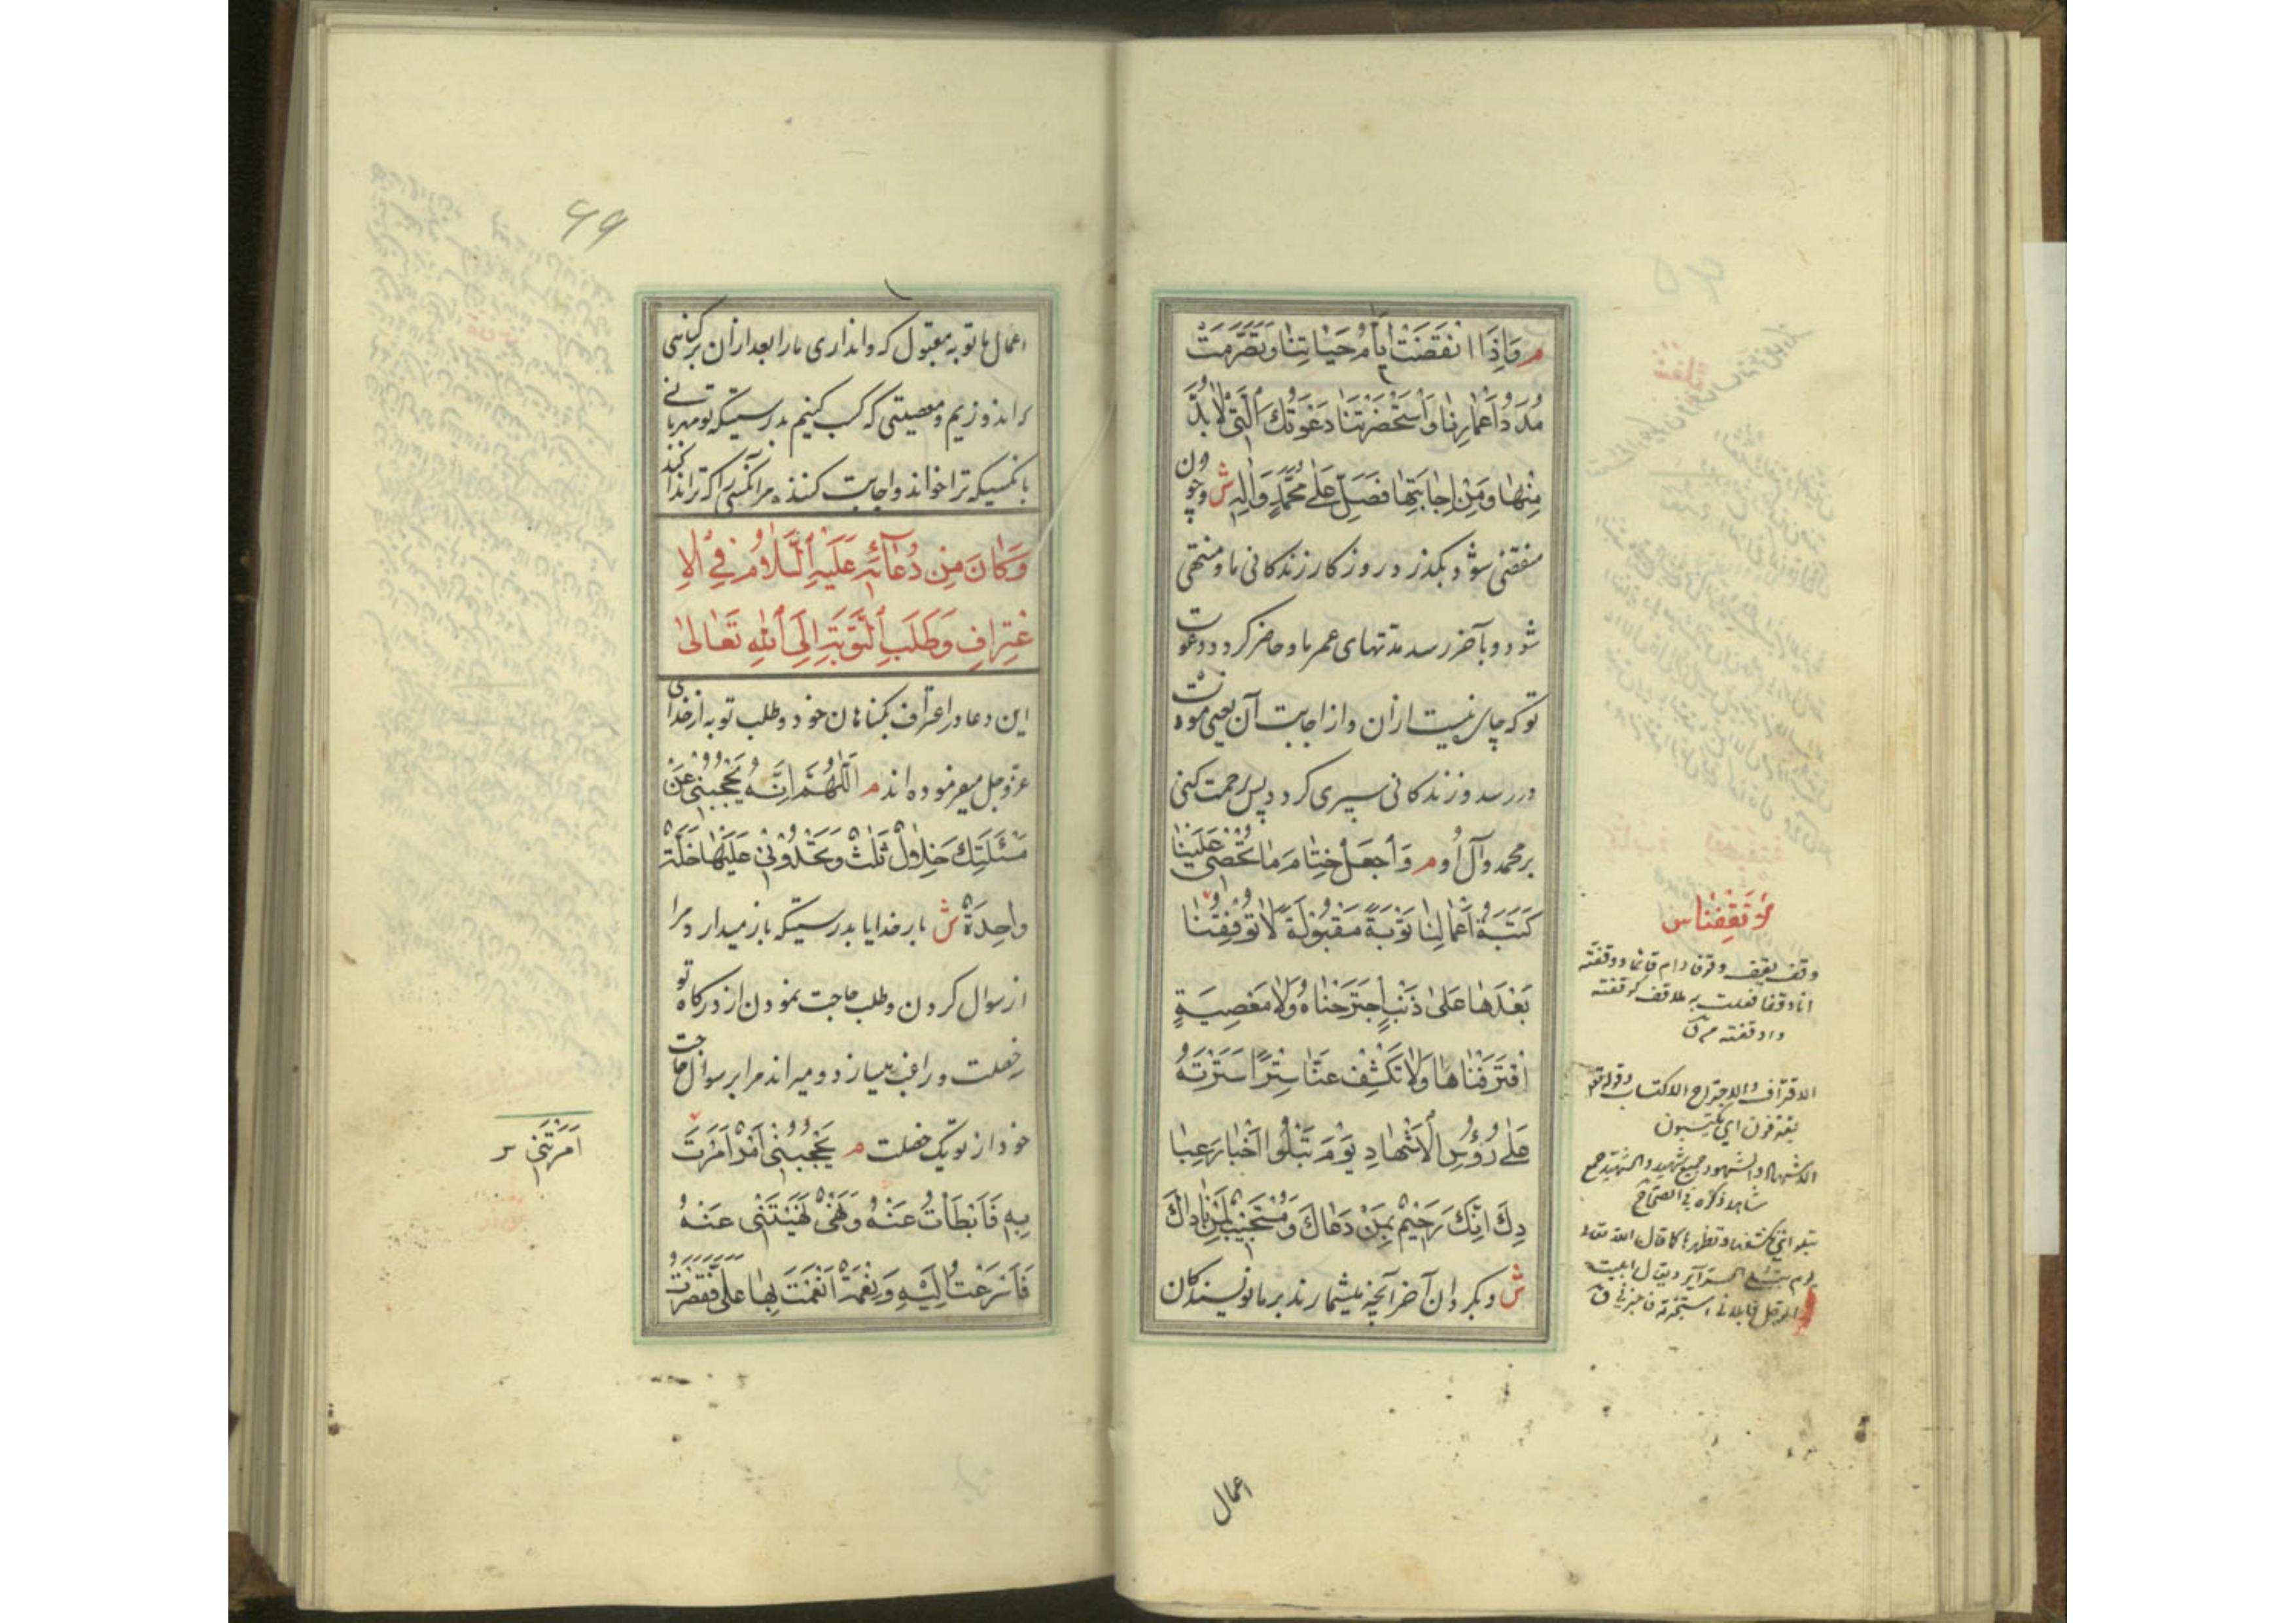 م وَاِذَا انْقَضَتْ اَيَّامُ حَيٰاتِنٰا وَتَصَرَّمَتْ
مُدَدُ اَعْمٰارِنٰا وَاسْتَحْضَرَتْنٰا دَعْوَتُكَ الَّتى لاٰ بُدَّ
مِنْهٰا وَمِنْ اِجٰابَتِهٰا فَصَلِّ عَلٰى مُحَمَّدٍ وَاٰلِهِ ش وچون
منقضی شود و بگذرد روزکار زندکانی ما و منتهی
شود و بآخر رسد مدتهای عمر ما و حاضر کردد دعوت
تو که چاره نیست ازان و از اجابت آن یعنی موت
در رسد و زندکانی سپری کردد پس رحمت کنی
بر محمد و آل او م وَاجْعَلْ خِتٰامَ مٰا تُحْصى عَلَيْنٰا
كَتَبَةُ اَعْمٰالِنٰا تَوْبَةً مَقْبُولَةً لاٰ تُوقِفُنٰا
بَعْدَهٰا عَلٰى ذَنْبٍ اجْتَرَحْنٰاهُ وَلاٰ مَعْصِيَةٍ
اقْتَرَفْنٰاهٰا وَلاٰ تَكْشِفْ عَنّٰا سِتْرًا سَتَرْتَهُ
عَلٰى رُؤُسِ الْاَشْهٰادِ يَوْمَ تَبْلُوا اَخْبٰارَ عِبٰا
دِكَ اِنَّكَ رَحيمٌ بِمَنْ دَعٰاكَ وَمُسْتَجيبٌ لِمَنْ نٰادٰاكَ
ش و بکردان آخر آنچه میشمارند بر ما نویسندکان
لا تقفنا س
وقف يقف وقوفا دام قائما ووقفته
انا وقفا فعلت به ما وقف كوقفته
واوقفته ق
الاقتراف والاجتراح الاكتساب وقوله تع
يقترفون اي يكتسبون
الاشهاد والشهود جمع شهيد والشهيد جمع
شاهد ذكره في الصحاح
اعمال
۶۹
اعمال ما توبه مقبول که واندادی ما را بعد ازان بر کناهی
که اندوزیم و معصیتی که کسب کنیم بدرستیکه تو مهربانی
بانکسیکه ترا خواند و اجابت کننده مر انکسی را که ترا ندا کند
وَكٰانَ مِنْ دُعٰائِهِ عَلَيْهِ السَّلاٰمُ فِي الْاِ
عْتِرٰافِ وَطَلَبِ التَّوْبَةِ اِلَى اللهِ تَعٰالٰى
این دعا در اعتراف بکناهان خود و طلب توبه از خدای
عزوجل میفرموده اند م اَللّٰهُمَّ اِنَّهُ يَحْجُبُنى عَنْ
مَسْئَلَتِكَ خِلاٰلٌ ثَلٰثٌ وَتَحْدُونى عَلَيْهٰا خَلَّةٌ
وٰاحِدَةٌ ش بار خدایا بدرستیکه باز میدارد مرا
از سوال کردن و طلب حاجت نمودن از درکاه تو
خصلت و راغب میسازد و میراند مرا بر سوال حاجت
خود از تو یک خصلت م يَحْجُبُنى اَمْرٌ اَمَرْتَ
بِهِ فَاَبْطَأْتُ عَنْهُ وَنَهْىٌ نَهَيْتَنى عَنْهُ
فَاَسْرَعْتُ اِلَيْهِ وَنِعْمَةٌ اَنْعَمْتَ بِهٰا عَلَىَّ فَقَصَّرْتُ
اَمَرْتَنى س